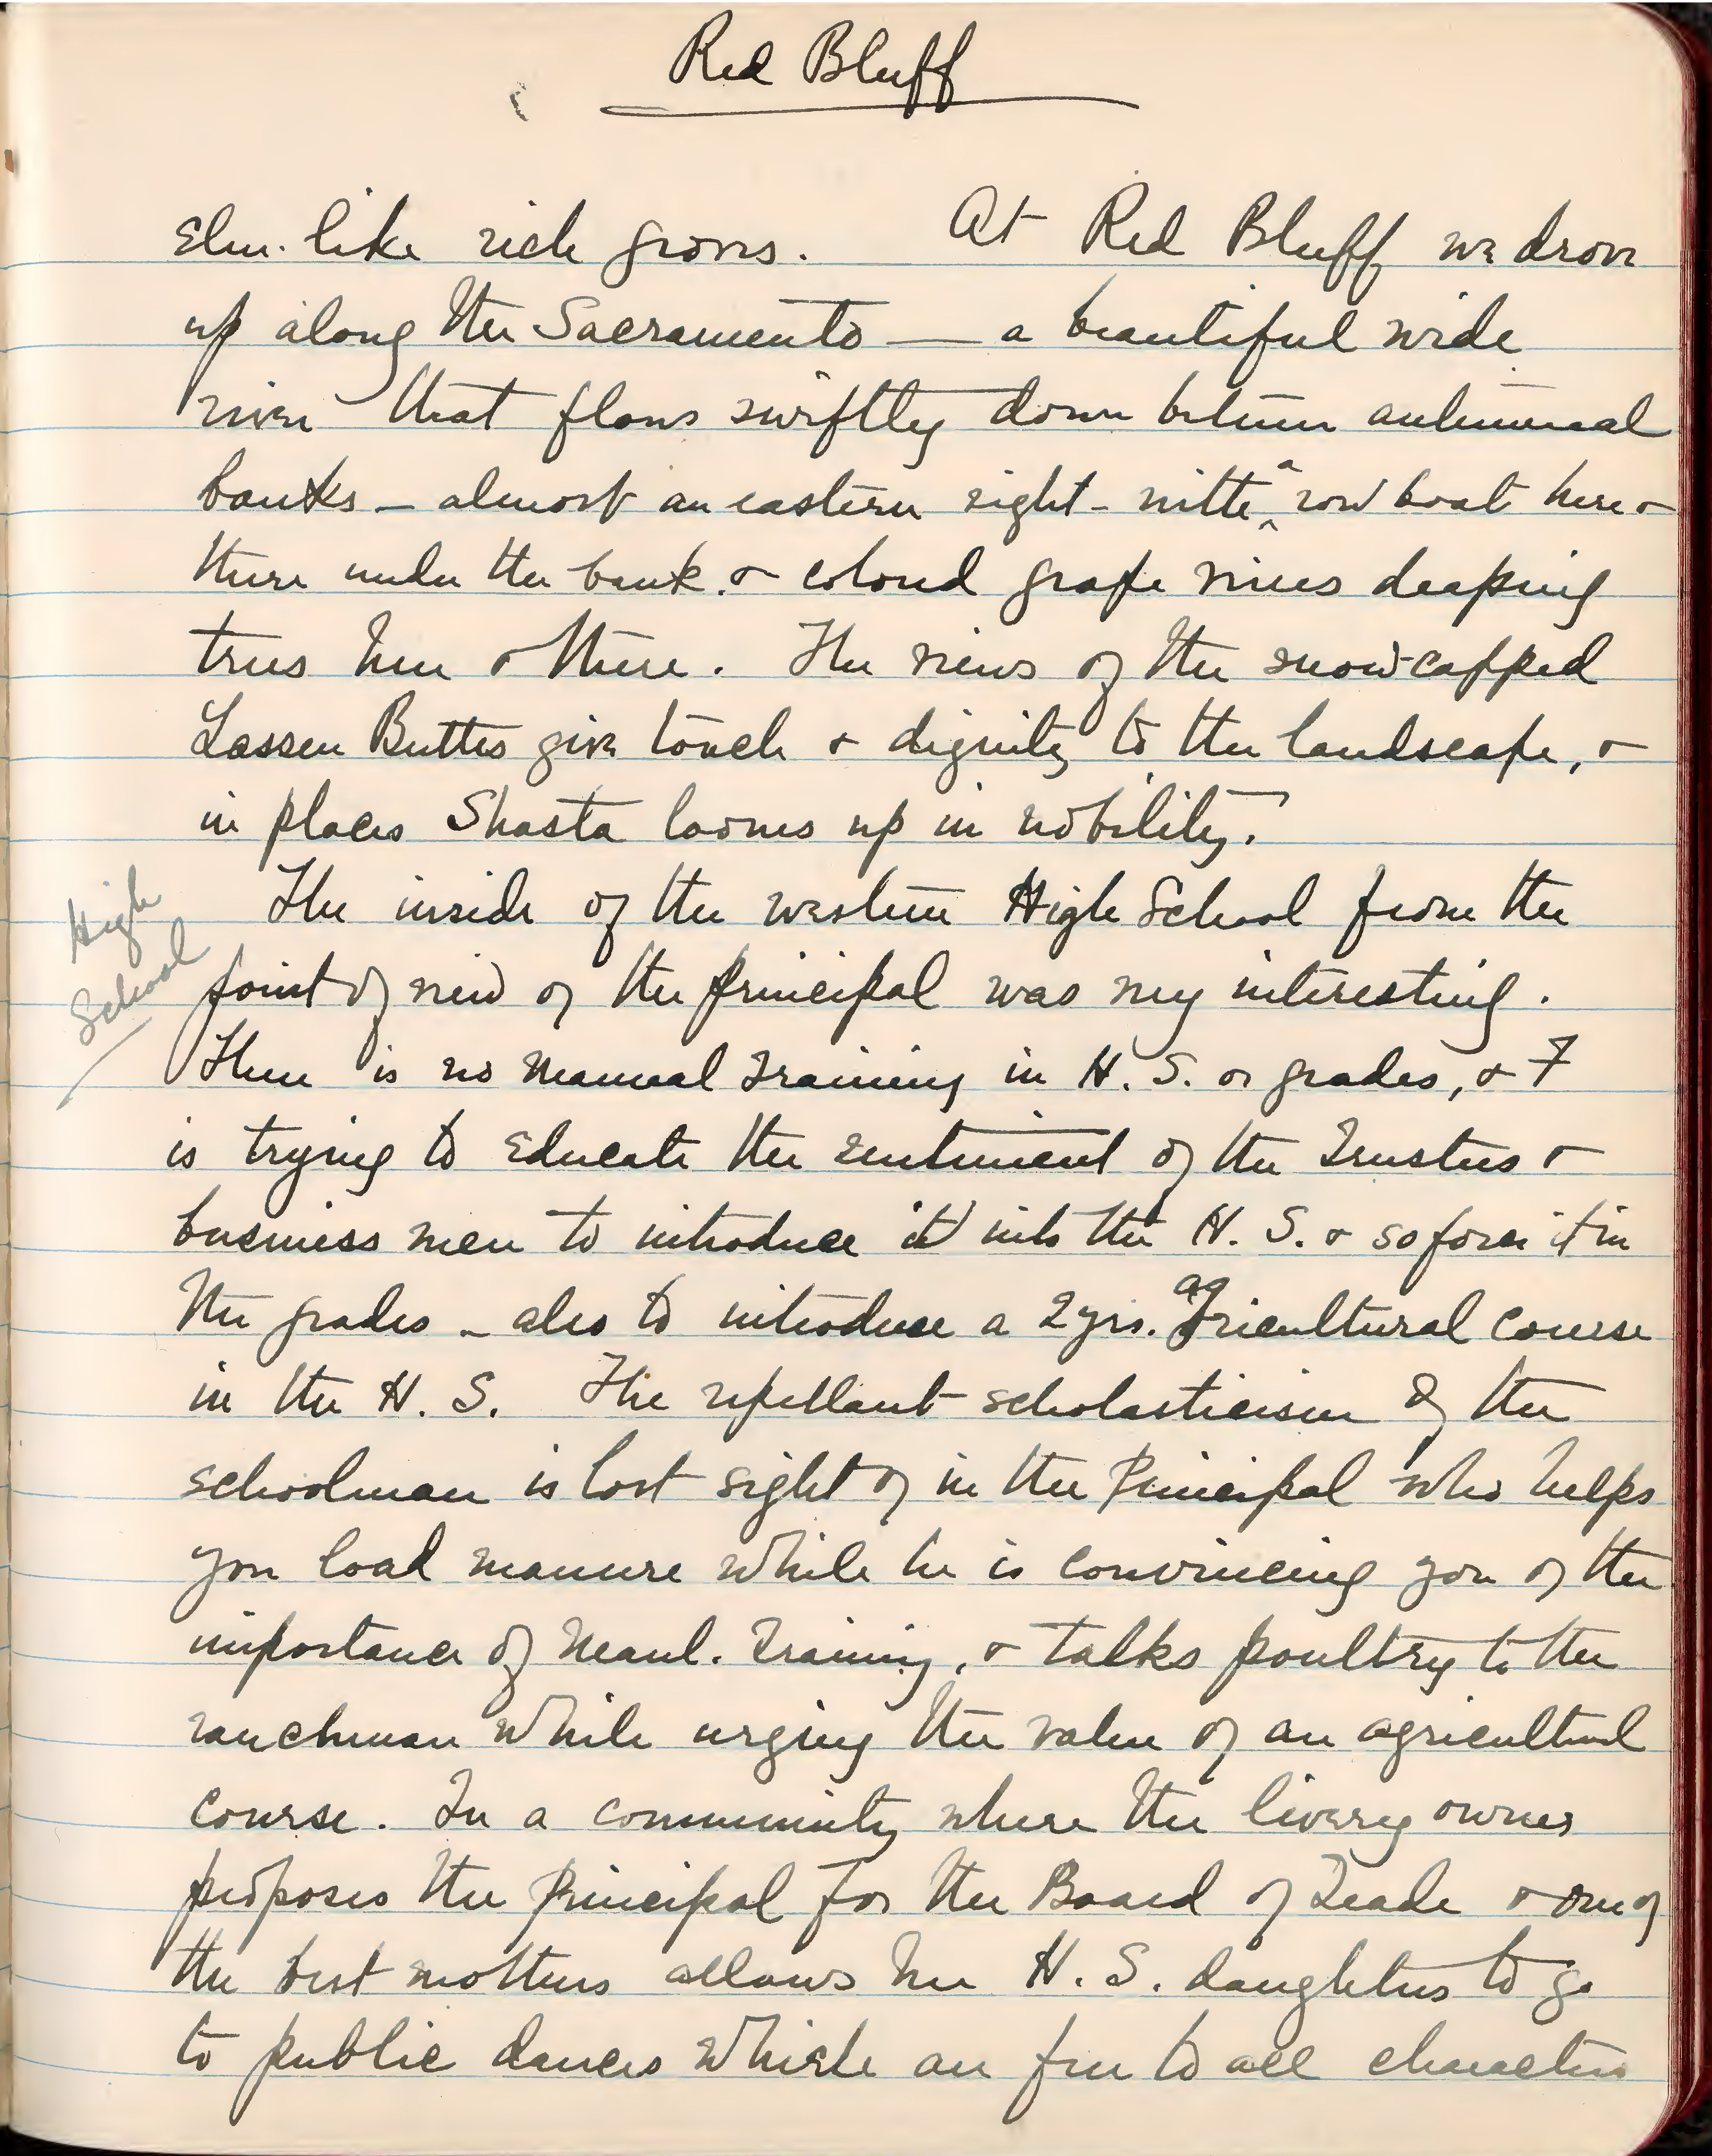 Red Bluff
Elm-like rich groves. At Red Bluff we drove
up along the Sacramento — a beautiful wide
river that flows swiftly down between autumnal
banks – almost an eastern sight – with a row boat here &
there under the bank. & colored grape vines draping
trees here & there. The views of the snow-capped
Lassen Buttes give touch & dignity to the landscape, &
in places Shasta looms up in nobility.
High
School
The inside of the western High School from the
point of view of the principal was very interesting.
There is no Manual Training in H. S. or grades, & F
is trying to educate the sentiment of the Trustees &
business men to introduce it into the H. S. & so force it in
the grades – also to introduce a 2 yrs. agricultural course
in the H. S. The repellant scholasticism of the
schoolman is lost sight of in the Principal who helps
you load manure while he is convincing you of the
importance of Manl. Training, & talks poultry to the
ranchman while urging the value of an agricultural
course. In a community where the livery owner
proposes the Principal for the Board of Trade & one of
the best mothers allows her H. S. daughters to go
to public dances which are free to all characters